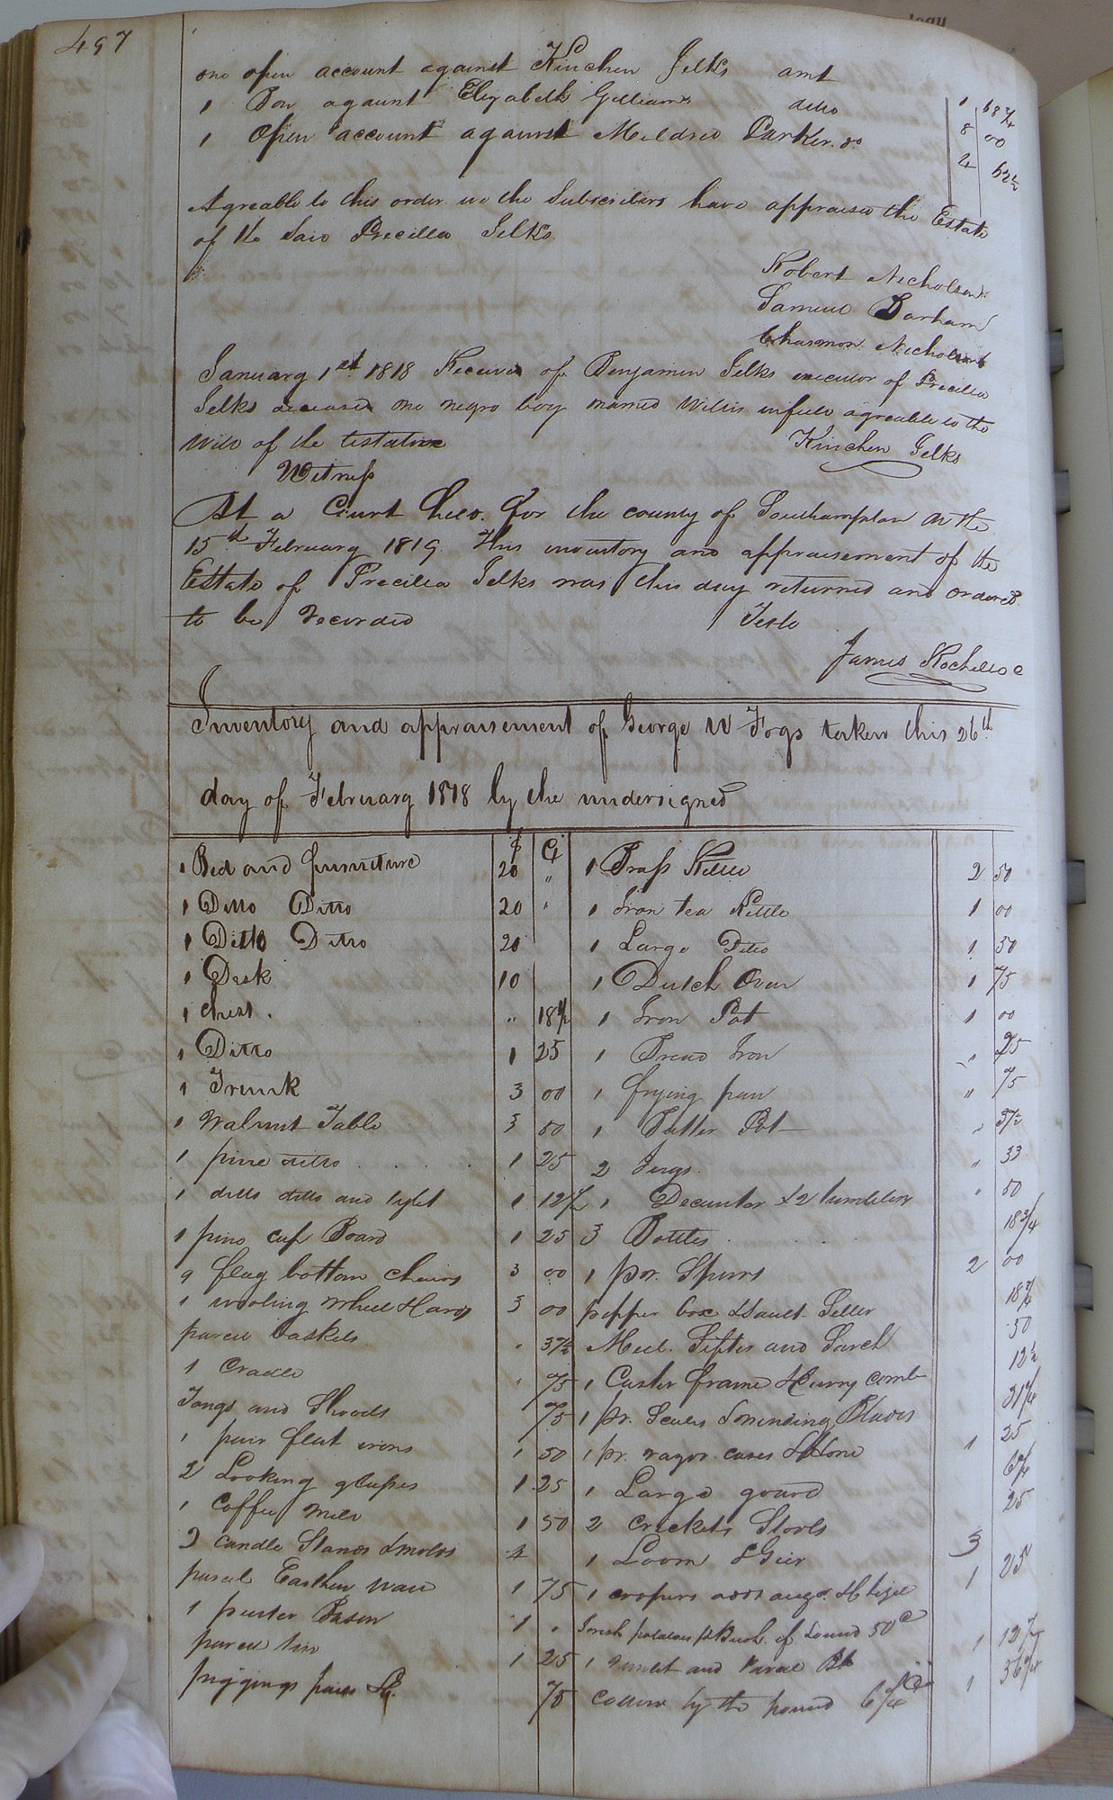 497
one open account against Kinchen Jelks amt 1 68 3/4
1 Bon against Elizabeth Gilliam ditto 8 00
1 Open account against Mildred Parker do 2 62 1/2
Agreable to this order we the Subscribers have appraised the Estate
of the said Precilla Jelks
Robert Nicholson
Samuel Barham
Nicholson
January 1st 1818 Received of Benjamin Jelks executor of Precilla
Jelks deceased one negro boy named Willis in full agreable to the
Will of the testatrix
Kinchen Jelks
Witness
At a Court held for the county of Southampton on the
15th February 1819 This inventory and appraisement of the
Estate of Precilla Jelks was this day returned and ordered
to be recorded
Teste
James Rochelle C
Inventory and appraisement of George W Fogs taken this 26th
day of February 1818 by the undersigned
$ Ct
1 Bed and furniture 20 "
1 Ditto Ditto 20 "
1 Ditto Ditto 20
1 Desk 10
1 Chest " 18 3/4
1 Ditto 1 25
1 Trunk 3 00
1 Walnut Table 3 50
1 pine ditto 1 25
1 ditto ditto and 1 12 1/2
1 pine cup Board 1 25
9 flag bottom chairs 3 00
1 wooling wheel & Cards 3 00
parcel baskets " 37 1/2
1 Cradle " 75
Tongs and Shovels 75
1 pair flat irons 1 50
2 Looking glasses 1 25
1 Coffee Mill 1 50
2 candle Stands & molds 4
parcel Earthen ware 1 75
1 pewter Bason 1 "
parcel tin 1 25
piggings pales &c. 75
1 Brass Kettle 2 50
1 Iron tea Kettle 1 00
1 Large Ditto 1 50
1 Dutch Oven 1 75
1 Iron Pot 1 00
1 Bread Iron " 25
1 frying pan " 75
1 Butter Pot " 37 1/2
2 Jugs " 33
1 Decanter & 2 tumblers " 50
3 Bottles 18 3/4
1 par. Spurs 2 00
pepper box & Sault Seller 18 3/4
Meal Sifter and Search 50
1 Caster frame & Curry comb 12 1/2
1 pr. Scales & Blades 31 1/4
1 pr. razor cases & Hone 1 25
1 Large gourd 6 1/4
2 Crickets Stools 25
1 Loom & Gier 3
1 coopers adds auger & 1 25
Irish potatoes pr Bush. if Sound 50c
1 and Barrel 1 12 1/2
Cotton by the pound 6 1/4 c 1 56 1/4